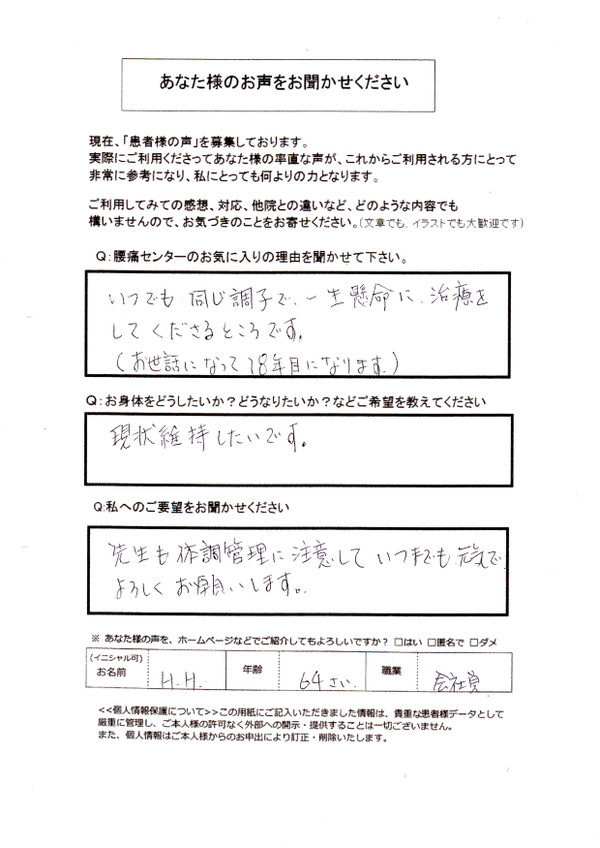 あなた様のお声をお聞かせください
現在、「患者様の声」を募集しております。
実際にご利用くださってあなた様の率直な声が、これからご利用される方にとって
非常に参考になり、私にとっても何よりの力となります。
ご利用してみての感想、対応、他院との違いなど、どのような内容でも
構いませんので、お気づきのことをお寄せください。(文章でも、イラストでも大歓迎です)
Q:腰痛センターのお気に入りの理由を聞かせて下さい。
いつでも同じ調子で、一生懸命に、治療を
してくださるところです。
(お世話になって18年目になります。)
Q:お身体をどうしたいか?どうなりたいか?などご希望を教えてください
現状維持したいです。
Q:私へのご要望をお聞かせください
先生も体調管理に注意して いつまでも元気で
よろしくお願いします。
※ あなた様の声を、ホームページなどでご紹介してもよろしいですか? □はい □匿名で □ダメ
(イニシャル可)
お名前 H.H. 年齢 64さい 職業 会社員
<<個人情報保護について>>この用紙にご記入いただきました情報は、貴重な患者様データとして
厳重に管理し、ご本人様の許可なく外部への開示・提供することは一切ございません。
また、個人情報はご本人様からのお申出により訂正・削除いたします。